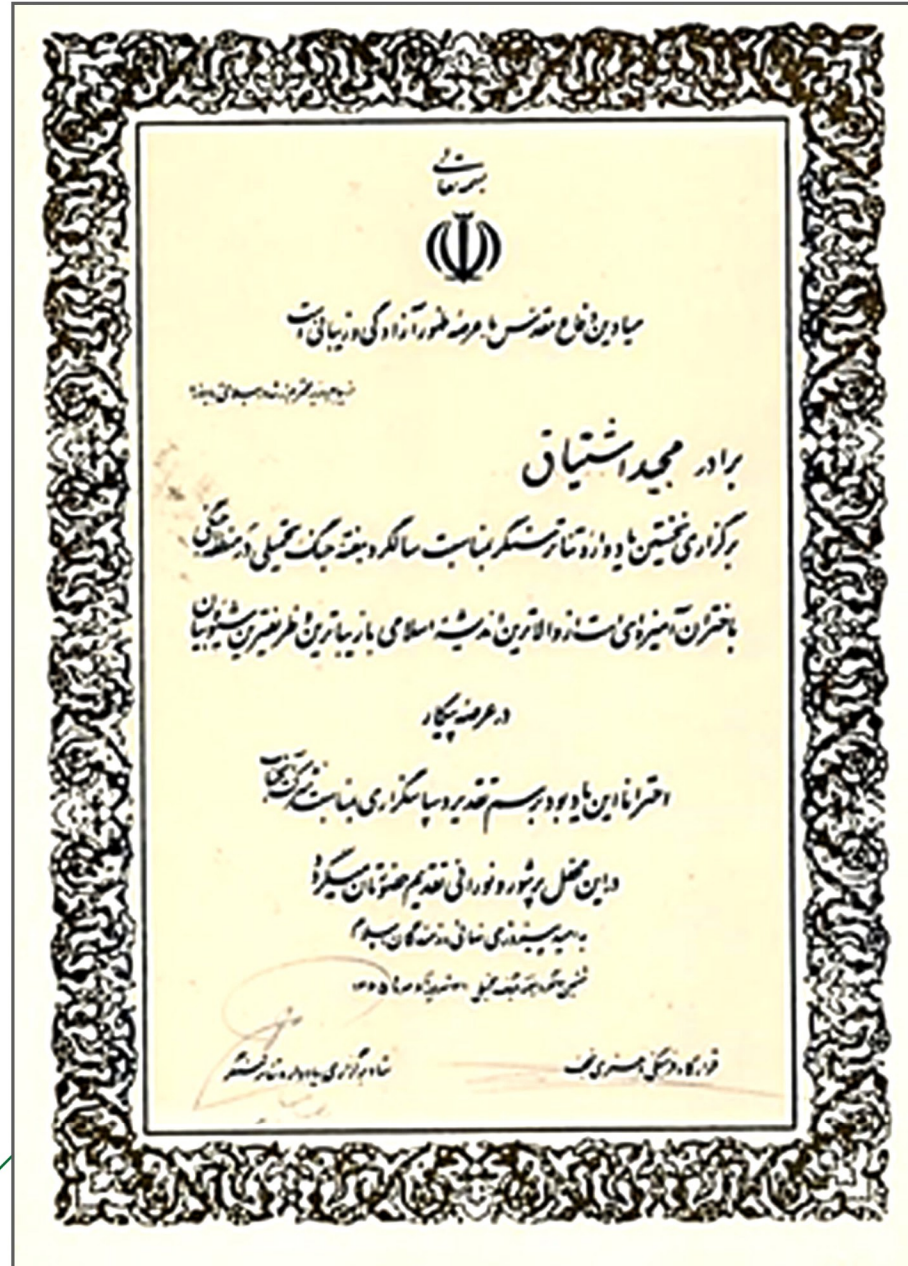 بسمه تعالی
میادین دفاع مقدس ما عرصه ظهور آزادگی و زیبائی است
برادر مجید اشتیاق
برگزاری نخستین یادواره تئاتر سنگر بمناسبت سالگرد هفته جنگ تحمیلی در منطقه جنگی
باختران آمیزه‌ای است از والاترین اندیشه اسلامی با زیباترین و ظریفترین شیوه بیان
در عرصه پیکار
احتراما این یادبود برسم تقدیر و سپاسگزاری بمناسبت شرکت
در این محفل پرشور و نورانی تقدیم حضورتان میگردد
به امید پیروزی نهائی رزمندگان اسلام
قرارگاه فرهنگی و هنری
ستاد برگزاری یادواره تئاتر سنگر